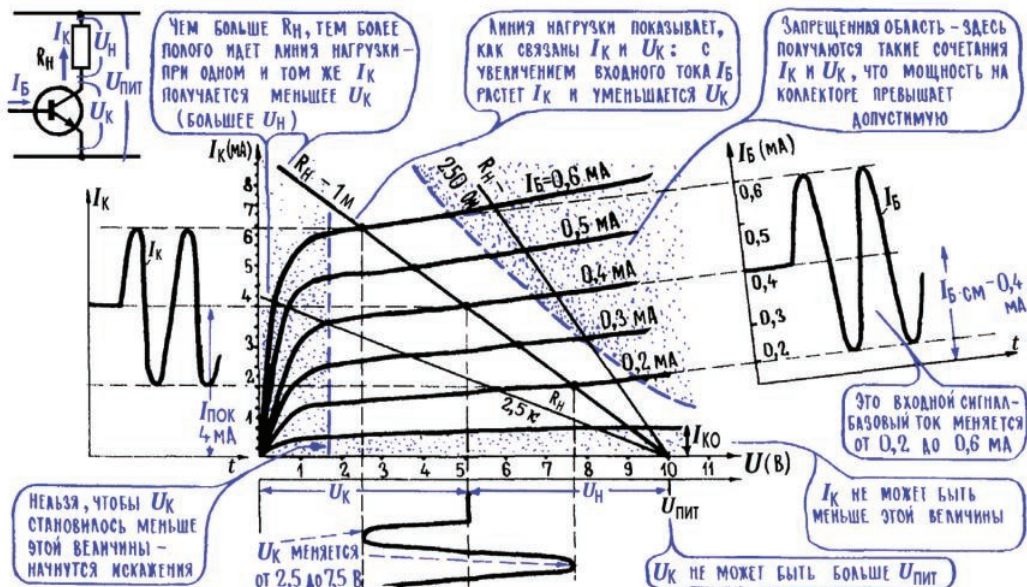 Iк
Uн
Rн
Uпит
Iб
Uк
Чем больше Rн, тем более
полого идет линия нагрузки –
при одном и том же Iк
получается меньшее Uк
(большее Uн)
Линия нагрузки показывает,
как связаны Iк и Uк: с
увеличением входного тока Iб
растет Iк и уменьшается Uк
Запрещенная область – здесь
получаются такие сочетания
Iк и Uк, что мощность на
коллекторе превышает
допустимую
Iк
Iк
4
Iпок
4 мА
t
Iк(мА)
8
7
6
5
4
3
2
1
Rн – 1м
250 Ом
Rн
Iб=0,6 мА
0,5 мА
0,4 мА
0,3 мА
0,2 мА
2,5 к
Rн
Iко
1 2 3 4 5 6 7 8 9 10 11 U(В)
Iб(мА)
0,6
0,5
0,4
0,3
0,2
Iб
Iб·см – 0,4
мА
t
Это входной сигнал–
базовый ток меняется
от 0,2 до 0,6 мА
Нельзя, чтобы Uк
становилось меньше
этой величины –
начнутся искажения
Uк
Uн
Uпит
Uк меняется
от 2,5 до 7,5 В
Iк не может быть
меньше этой величины
Uк не может быть больше Uпит